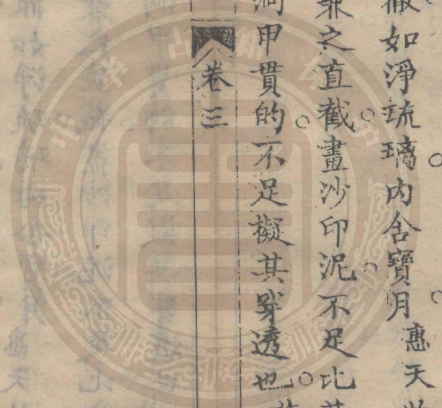 徹如淨琉璃內含寶月惠天
兼之直截畫沙印泥不足比其
洞甲貫的不足擬其穿透也
卷三